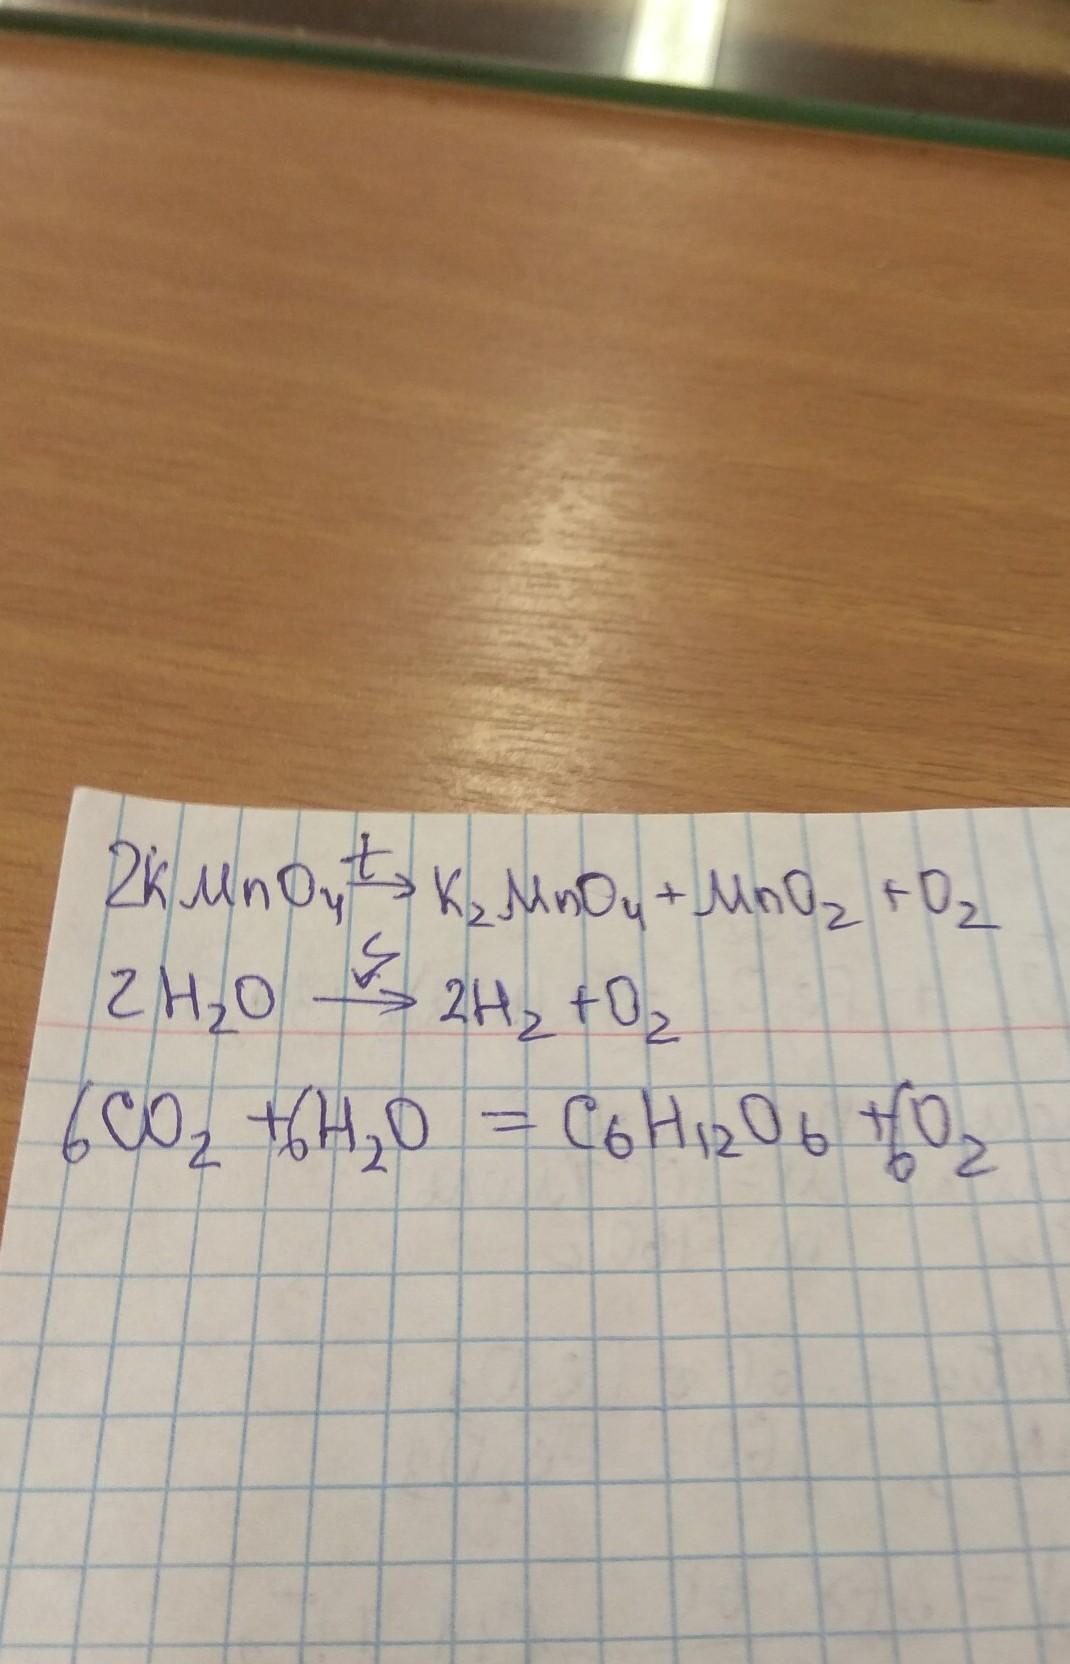 t
2KMnO₄ → K₂MnO₄ + MnO₂ + O₂
2H₂O → 2H₂ + O₂
6CO₂ + 6H₂O = C₆H₁₂O₆ + 6O₂